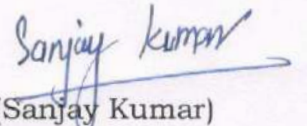 Sanjay Kumar
(Sanjay Kumar)